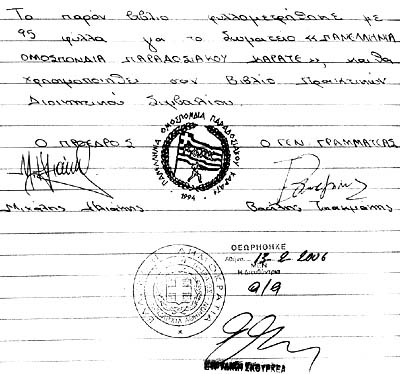 Το παρόν βιβλίο φυλλομετρήθηκε με
95 φύλλα για το Σωματείο «ΠΑΝΕΛΛΗΝΙΑ
ΟΜΟΣΠΟΝΔΙΑ ΠΑΡΑΔΟΣΙΑΚΟΥ ΚΑΡΑΤΕ», και θα
χρησιμοποιηθεί σαν Βιβλίο Πρακτικών
Διοικητικού Συμβουλίου.
Ο ΠΡΟΕΔΡΟΣ
ΠΑΝΕΛΛΗΝΙΑ ΟΜΟΣΠΟΝΔΙΑ ΠΑΡΑΔΟΣΙΑΚΟΥ ΚΑΡΑΤΕ
1994
Ο ΓΕΝ. ΓΡΑΜΜΑΤΕΑΣ
Μιχάλης
Βασίλης
ΕΛΛΗΝΙΚΗ ΔΗΜΟΚΡΑΤΙΑ
ΘΕΩΡΗΘΗΚΕ
Αθήνα 13-2-2006
Η Διευθύντρια
α/α
ΣΚΟΥΡΚΕΑ